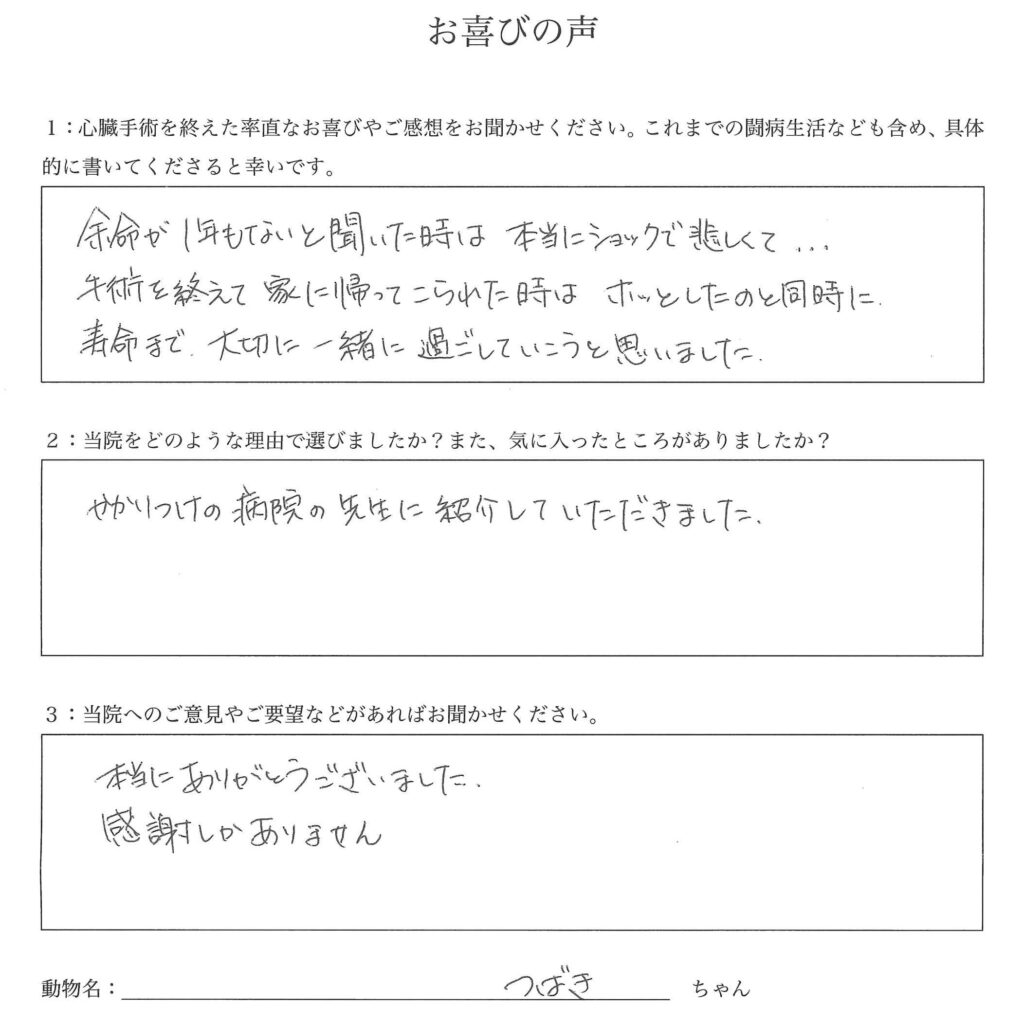 お喜びの声
1:心臓手術を終えた率直なお喜びやご感想をお聞かせください。これまでの闘病生活なども含め、具体
的に書いてくださると幸いです。
余命が1年もないと聞いた時は 本当にショックで悲しくて...
手術を終えて家に帰ってこられた時は ホッとしたのと同時に.
寿命まで.大切に一緒に過ごしていこうと思いました.
2:当院をどのような理由で選びましたか?また、気に入ったところがありましたか?
かかりつけの病院の先生に紹介していただきました.
3:当院へのご意見やご要望などがあればお聞かせください。
本当にありがとうございました.
感謝しかありません
動物名: つばき ちゃん